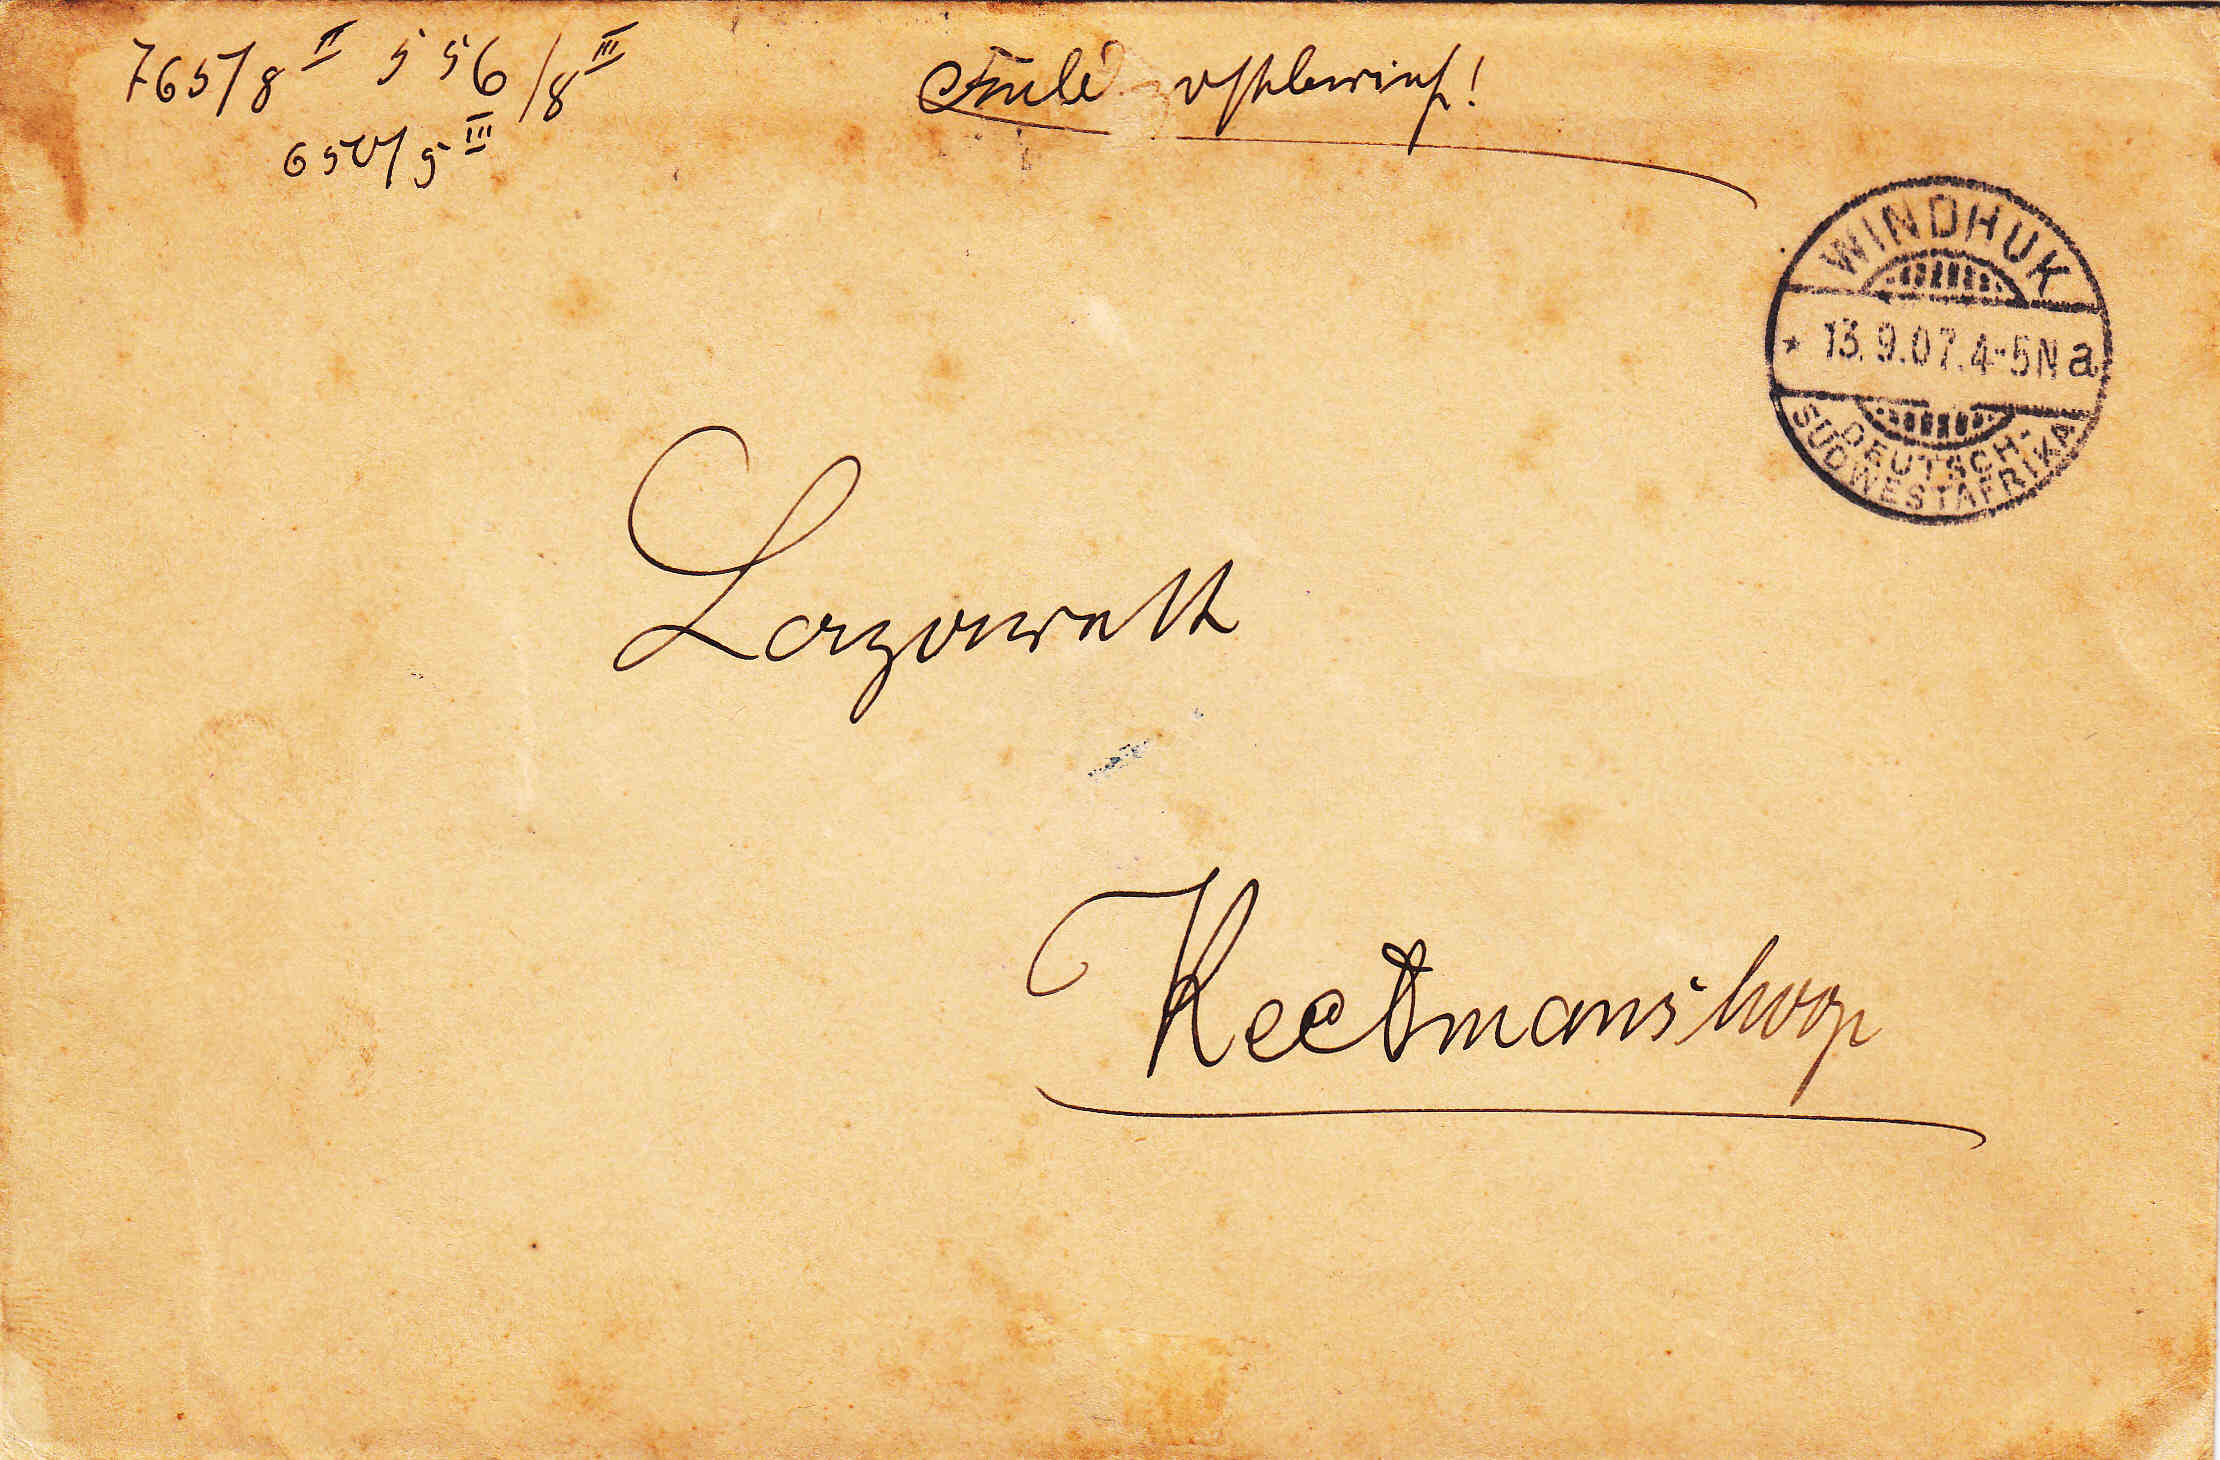 765/8 II 556/8 III
650/5 III
Feldpostbrief!
WINDHUK
* 13.9.07.4-5N a
DEUTSCH-
SÜDWESTAFRIKA
Lazarett
Keetmanshoop